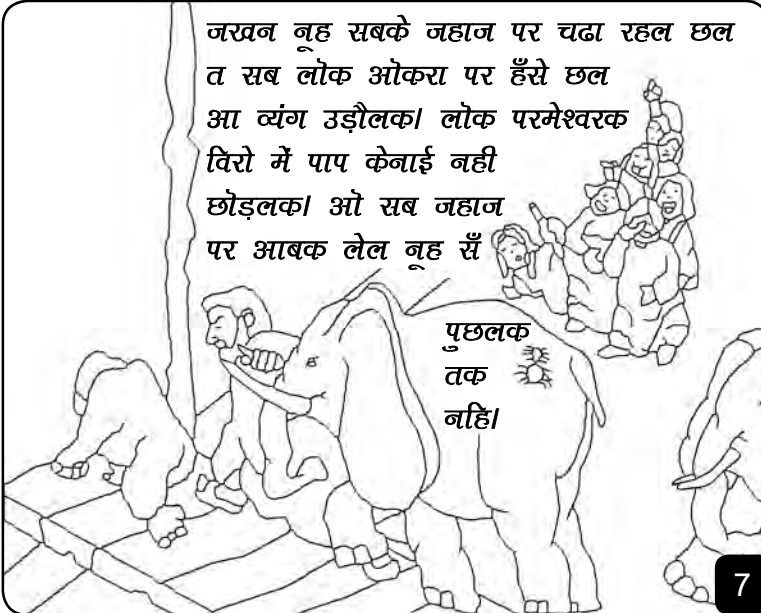 जखन नूह सबके जहाज पर चढा रहल छल
त सब लॊक ऒकरा पर हँसे छल
आ व्यंग उड़ौलक। लॊक परमेश्वरक
विरो में पाप केनाई नही
छॊड़लक। ऒ सब जहाज
पर आबक लेल नूह सँ
पुछलक
तक
नहि।
7